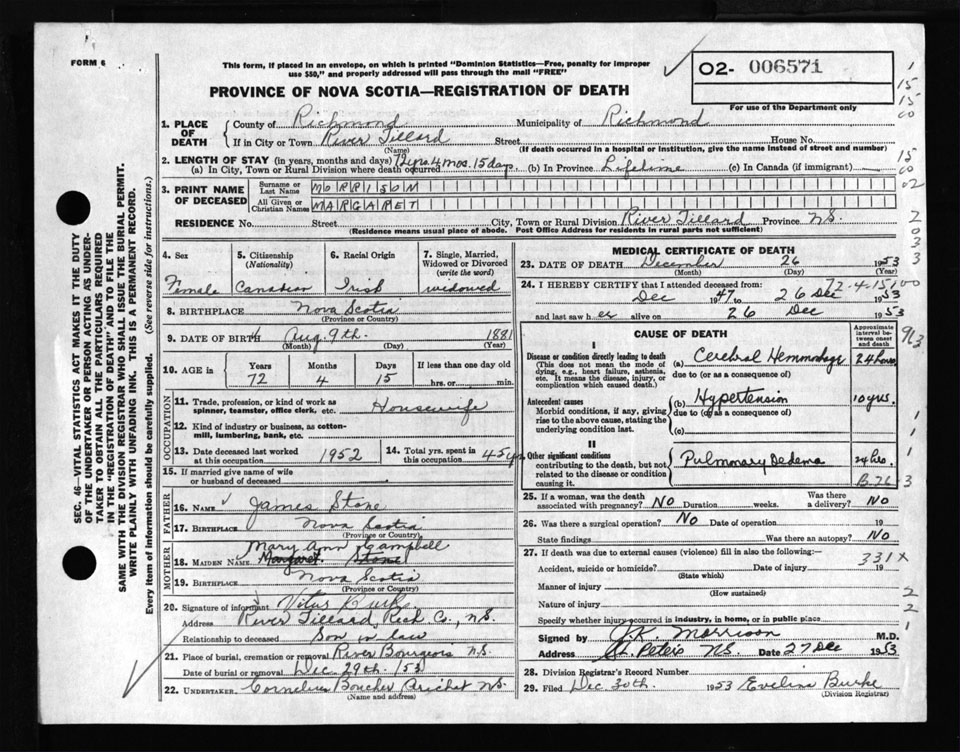 FORM 6
This form, if placed in an envelope, on which is printed "Dominion Statistics—Free, penalty for improper
use $50," and properly addressed will pass through the mail "FREE"
PROVINCE OF NOVA SCOTIA—REGISTRATION OF DEATH
02- 006571
For use of the Department only
SEC. 46—VITAL STATISTICS ACT MAKES IT THE DUTY
OF THE UNDERTAKER OR PERSON ACTING AS UNDER-
TAKER TO OBTAIN ALL THE PARTICULARS REQUIRED
IN THE "REGISTRATION OF DEATH" AND TO FILE THE
SAME WITH THE DIVISION REGISTRAR WHO SHALL ISSUE THE BURIAL PERMIT.
WRITE PLAINLY WITH UNFADING INK. THIS IS A PERMANENT RECORD.
Every item of information should be carefully supplied. (See reverse side for instructions.)
1. PLACE OF DEATH County of Richmond Municipality of Richmond
If in City or Town River Tillard Street House No.
(Name) (If death occurred in a hospital or institution, give the name instead of street and number)
2. LENGTH OF STAY (in years, months and days) 72 yrs. 4 mos. 15 days
(a) In City, Town or Rural Division where death occurred (b) In Province Lifetime (c) In Canada (if immigrant)
3. PRINT NAME OF DECEASED Surname or Last Name MORRISON
All Given or Christian Names MARGARET
RESIDENCE No. Street City, Town or Rural Division River Tillard Province N.S.
(Residence means usual place of abode. Post Office Address for residents in rural parts not sufficient)
4. Sex 5. Citizenship (Nationality) 6. Racial Origin 7. Single, Married, Widowed or Divorced (write the word)
Female Canadian Irish widowed
8. BIRTHPLACE Nova Scotia
(Province or Country)
9. DATE OF BIRTH Aug. 9th. 1881
(Month) (Day) (Year)
10. AGE in Years Months Days If less than one day old
72 4 15 hrs. or min.
OCCUPATION
11. Trade, profession, or kind of work as spinner, teamster, office clerk, etc. Housewife
12. Kind of industry or business, as cotton-mill, lumbering, bank, etc.
13. Date deceased last worked at this occupation 1952 14. Total yrs. spent in this occupation 45 yrs
15. If married give name of wife or husband of deceased
FATHER
16. Name James Stone
17. Birthplace Nova Scotia
(Province or Country)
MOTHER
Mary Ann Campbell
18. MAIDEN NAME Margaret Stone
19. Birthplace Nova Scotia
(Province or Country)
20. Signature of informant Vitus Burke
Address River Tillard Rich Co., N.S.
Relationship to deceased Son in law
21. Place of burial, cremation or removal River Bourgeois N.S.
Date of burial or removal Dec 29th. '53
22. UNDERTAKER Cornelius Boucher Arichat N.S.
(Name and address)
MEDICAL CERTIFICATE OF DEATH
23. DATE OF DEATH December 26 1953
(Month) (Day) (Year)
72-4-15
24. I HEREBY CERTIFY that I attended deceased from:
Dec 1947 to 26 Dec 1953
and last saw her alive on 26 Dec 1953
CAUSE OF DEATH
Approximate interval between onset and death
I
Disease or condition directly leading to death (a) Cerebral Hemmorhage 24 hours
(This does not mean the mode of dying, e.g., heart failure, asthenia, etc. It means the disease, injury, or complication which caused death.)
due to (or as a consequence of)
Antecedent causes (b) Hypertension 10 yrs.
Morbid conditions, if any, giving rise to the above cause, stating the underlying condition last.
due to (or as a consequence of)
(c)
II
Other significant conditions Pulmonary Oedema 24 hrs.
contributing to the death, but not related to the disease or condition causing it.
25. If a woman, was the death associated with pregnancy? No Duration weeks. Was there a delivery? No
26. Was there a surgical operation? No Date of operation 19
State findings Was there an autopsy? No
27. If death was due to external causes (violence) fill in also the following:—
331 X
Accident, suicide or homicide? Date of injury 19
(State which)
Manner of injury
(How sustained)
Nature of injury
Specify whether injury occurred in industry, in home, or in public place
Signed by J.K. Morrison M.D.
Address St. Peters N.S. Date 27 Dec 1953
28. Division Registrar's Record Number
29. Filed Dec 30th. 1953 Evelina Burke
(Division Registrar)